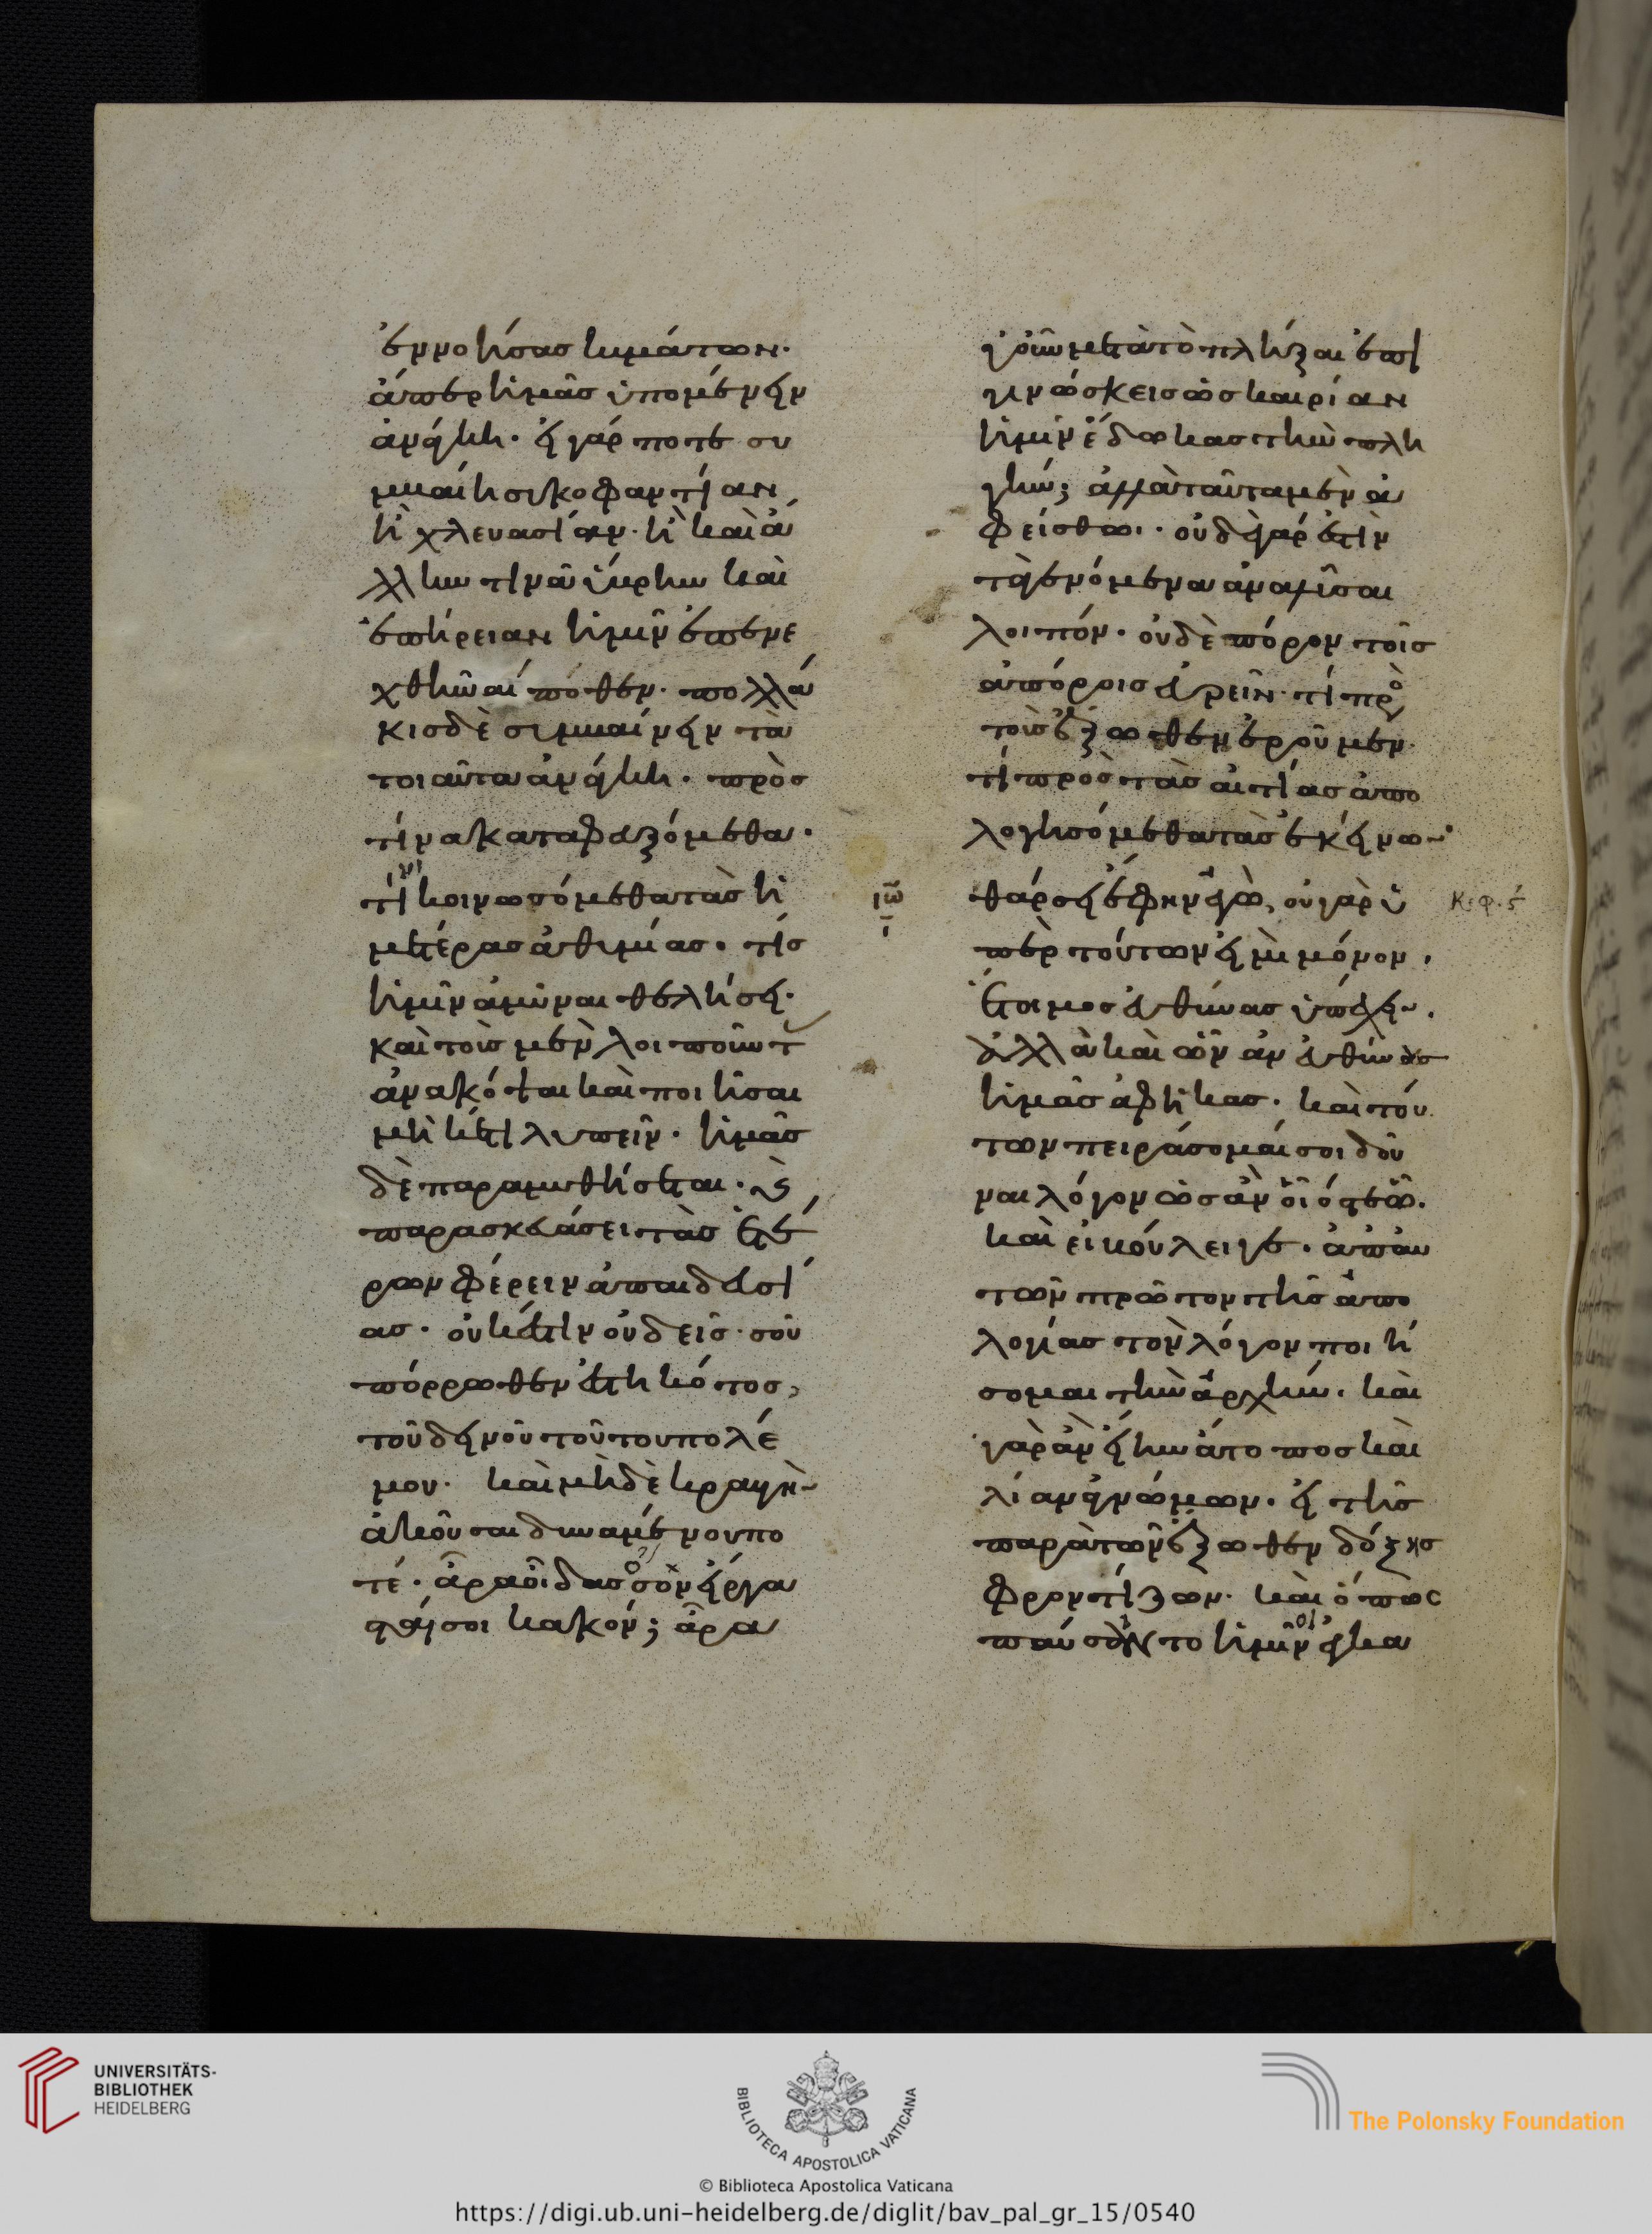 ἐννοήσας κυμάτων·
ἅπερ ἡμᾶς ὑπομένειν
ἀνάγκη· εἰ γάρ ποτε συ
μβαίη συκοφαντίαν,
ἢ χλευασίαν· ἢ καὶ ἄ
λλην τινὰ ὕβριν καὶ
ἐπήρειαν ἡμῖν ἐπενε
χθῆναί ποθεν· πολλά
κις δὲ συμβαίνειν τὰ
τοιαῦτα ἀνάγκη· πρὸς
τίνα καταφευξόμεθα·
τίνι κοινωσόμεθα τὰς ἡ
μετέρας ἀθυμίας· τίς
ἡμῖν ἀμῦναι θελήσει·
καὶ τοὺς μὲν λοιποῦντ
ἀνακόψαι καὶ ποιῆσαι
μηκέτι λυπεῖν· ἡμᾶς
δὲ παραμυθήσεται· κ(αὶ)
παρασκευάσει τὰς ἑτέ
ρων φέρειν ἀπαιδευσί
ας· οὐκ ἔστιν οὐδείς· σοῦ
πόρρωθεν ἑστηκότος,
τοῦ δεινοῦ τούτου πολέ
μου· καὶ μηδὲ κραυγῆς
ἀκοῦσαι δυναμένου πο
τέ· ἆρα οἶδας ὅσον εἴργα
σταί σοι κακόν; ἆρα
γοῦν μετὰ τὸ πλήξαι ἐπι
γινώσκεις ὡς καιρίαν
ἡμῖν ἔδωκας τὴν πλη
γήν; ἀλλὰ ταῦτα μὲν ἀ
φείσθω· οὐδὲ γάρ ἐστιν
τὰ γενόμενα ἀναλῦσαι
λοιπόν· οὐδὲ πόρον τοῖς
ἀπόροις εὑρεῖν· τί πρὸ
τοὺς ἔξωθεν ἐροῦμεν·
τί πρὸς τὰς αἰτίας ἀπο
λογησόμεθα τὰς ἐκείνων·
ιω
θάρσει ἔφην ἐγὼ, οὐ γὰρ ὑ
Κεφ. ς
πὲρ τούτων εἰμὶ μόνον,
ἕτοιμος εὐθύνας ὑπέχειν.
ἀλλὰ καὶ ὧν ἀνευθύνας
ἡμᾶς ἀφῆκας· καὶ τού
των πειράσομαί σοι δοῦ
ναι λόγον ὡς ἂν οἷός τε ὦ.
καὶ εἰ βούλει γε· ἀπ' αὐ
τῶν πρῶτον τῆς ἀπο
λογίας τὸν λόγον ποιή
σομαι τὴν ἀρχήν· καὶ
γὰρ ἂν εἴην ἄτοπος καὶ
λίαν ἀγνώμων· εἰ τῆς
παρὰ τῶν ἔξωθεν δόξης
φροντίζων· καὶ ὅπως
παύσοιντο ἡμῖν οἱ ἐγκα
UNIVERSITÄTS-
BIBLIOTHEK
HEIDELBERG
BIBLIOTECA APOSTOLICA VATICANA
The Polonsky Foundation
© Biblioteca Apostolica Vaticana
https://digi.ub.uni-heidelberg.de/diglit/bav_pal_gr_15/0540